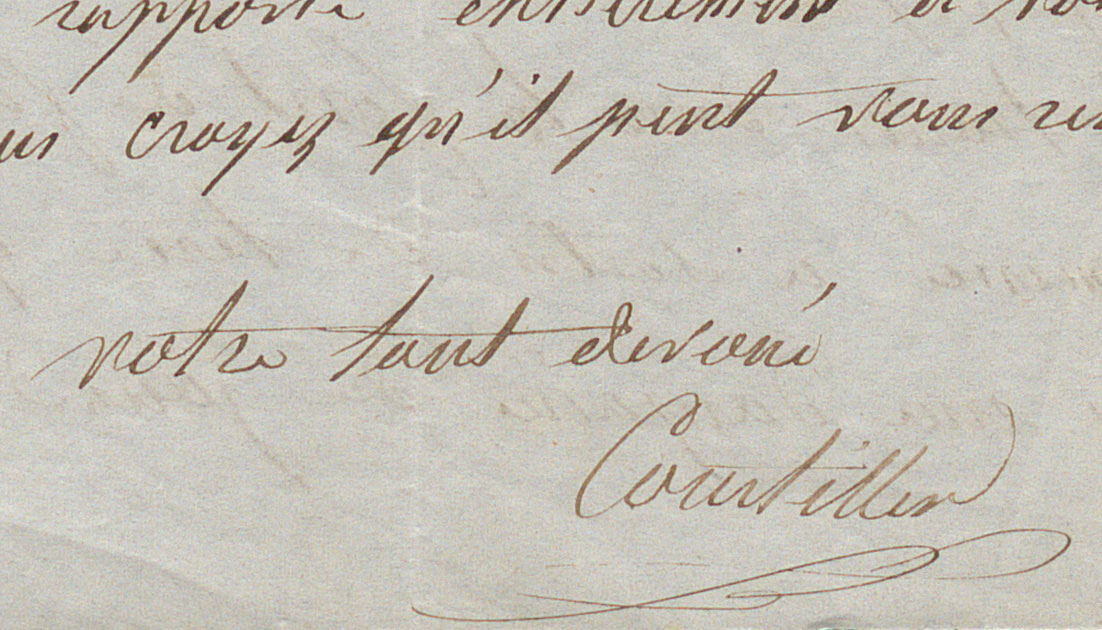 rapporte entièrement à vo
us croyez qu'il peut vous ren
votre tout dévoué
Courtiller